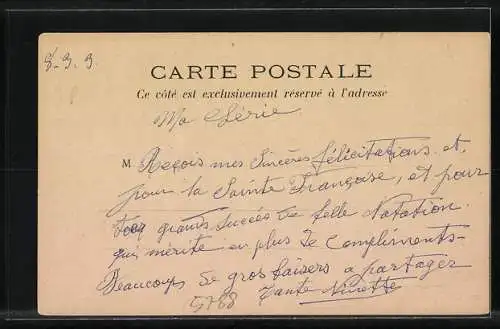 8.3.3.
CARTE POSTALE
Ce côté est exclusivement réservé à l'adresse
Ma Chérie
M. Reçois mes Sincères félicitations et
pour la Sainte Françoise, et pour
grands succès de belle Natation
qui mérite en plus de Compliments-
Beaucoup de gros baisers a partager
Tante Ninette
5788